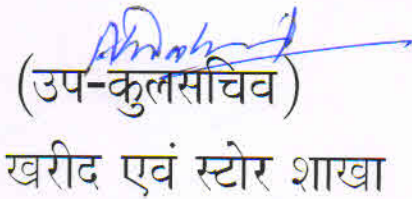 (उप-कुलसचिव)
खरीद एवं स्टोर शाखा